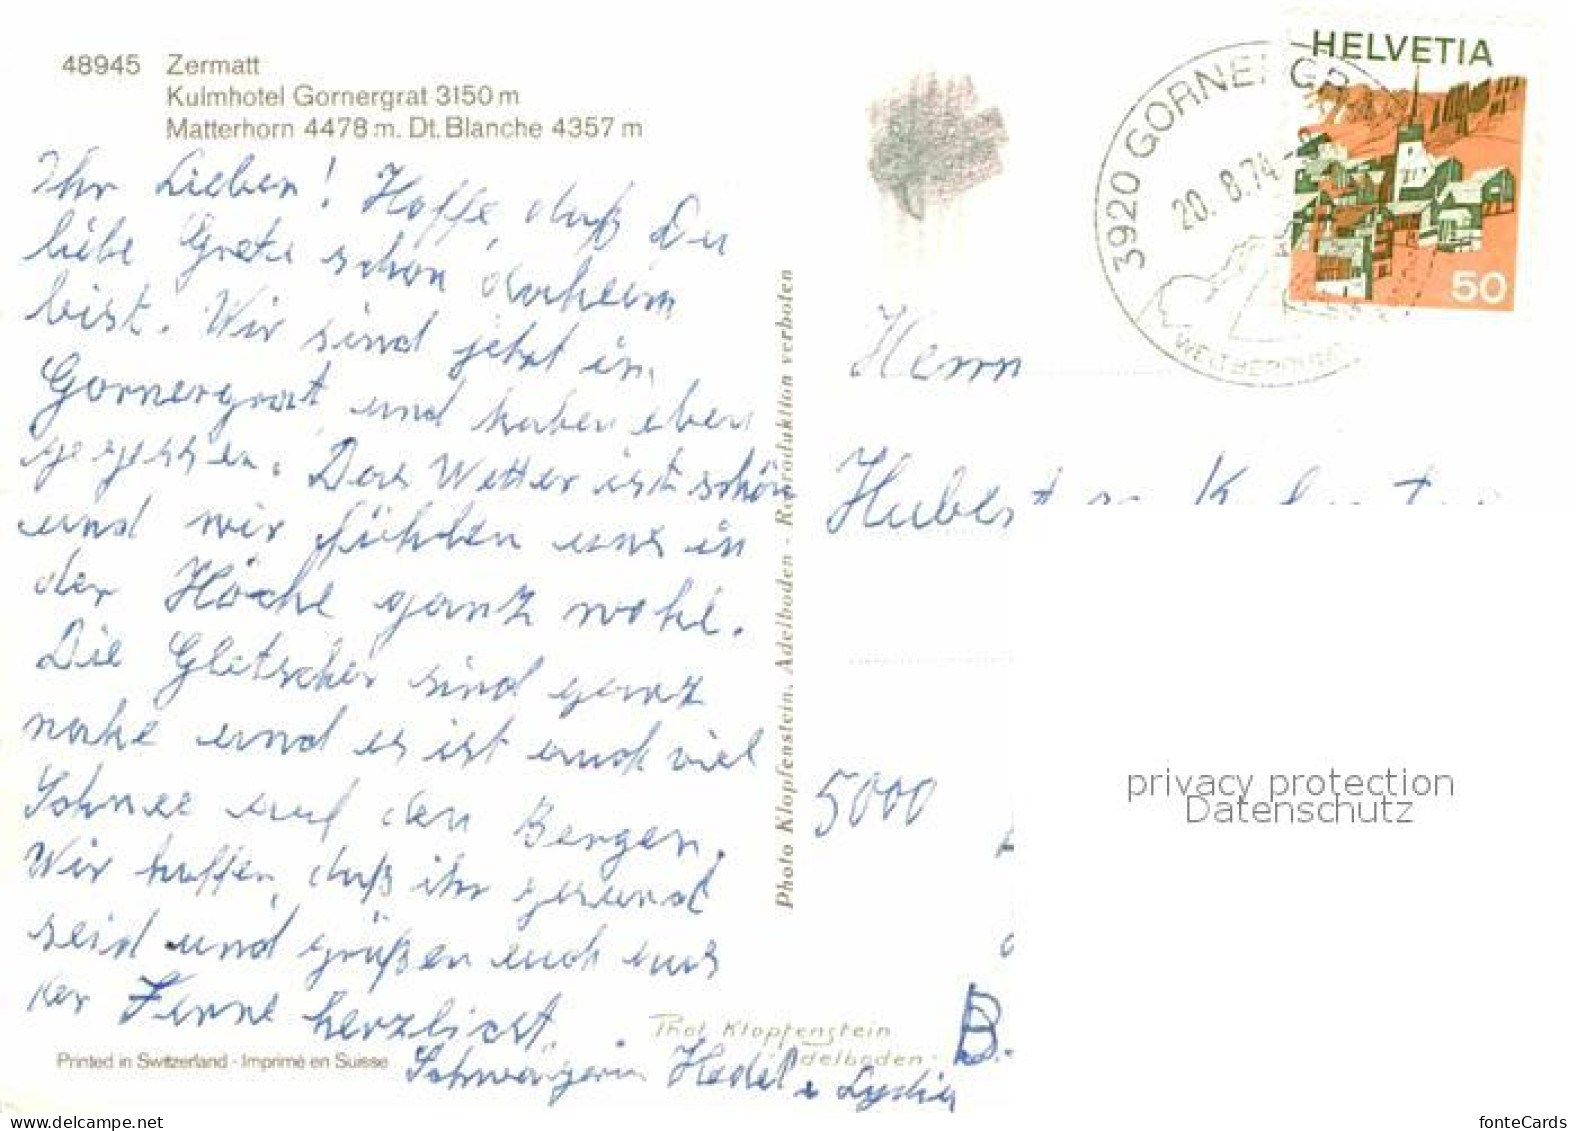 48945 Zermatt
Kulmhotel Gornergrat 3150 m
Matterhorn 4478 m. Dt. Blanche 4357 m
Ihr Lieben! Hoffe, daß Du
liebe Grete schon daheim
bist. Wir sind jetzt in
Gornergrat und haben eben
gegessen. Das Wetter ist schön
und wir fühlen uns in
der Höhe ganz wohl.
Die Gletscher sind ganz
nahe und es ist auch viel
Schnee auf den Bergen.
Wir hoffen, daß ihr gesund
seid und grüßen euch aus
der Ferne herzlichst.
Schwägerin Hedel u Lydia
Printed in Switzerland - Imprimé en Suisse
Phot Klopfenstein
Adelboden
Photo Klopfenstein, Adelboden - Reproduktion verboten
HELVETIA
50
3920 GORNERGR
20. 8. 74
WELTBERÜHM
Herrn
Hubert
5000
B.
privacy protection
Datenschutz
fonteCards